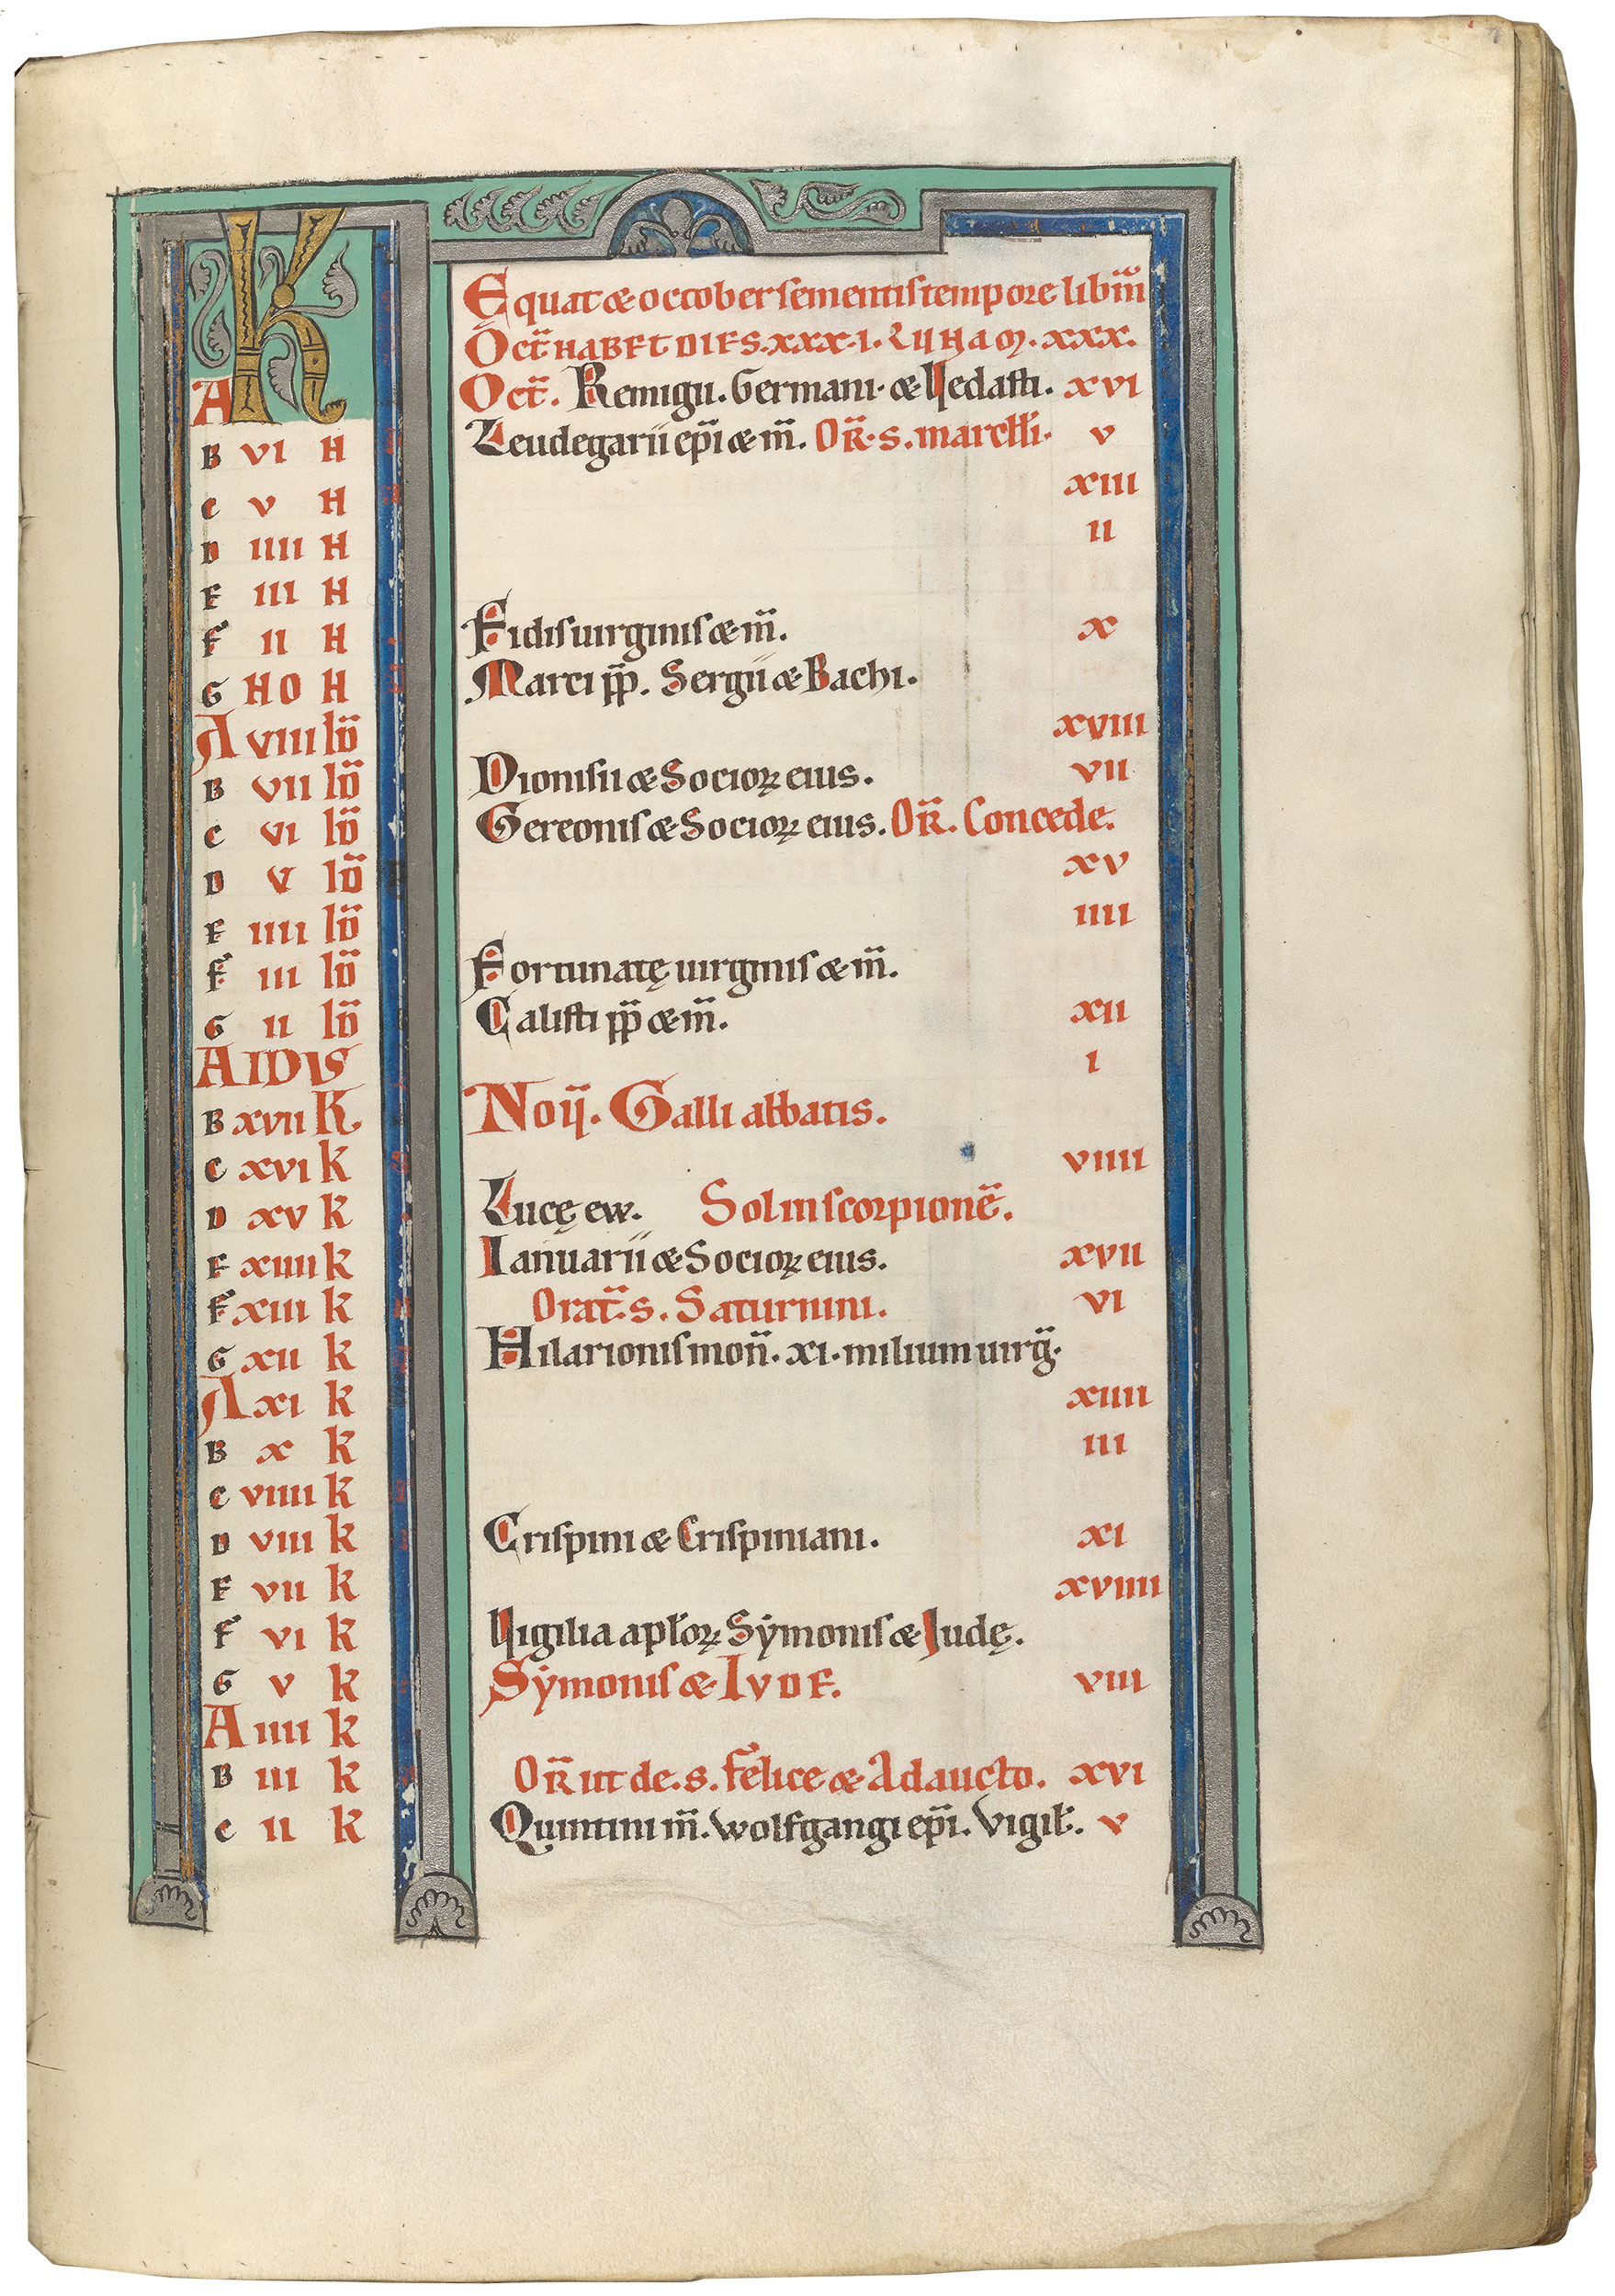 Equat & october sementis tempore libm̄
Oct̄ HABET DIES. XXX.I. LUNA Q̄. XXX.
KL
A Oct̄. Remigii. Germani. & Vedasti. xvi
B vi N Leudegarii ep̄i & m̄. OR̄. s. marcelli. v
C v N xiii
D iiii N ii
E iii N
F ii N Fidis uirginis & m̄. x
G NO N Marci pp̄. Sergii & Bachi.
A viii ID̄ xviii
B vii ID̄ Dionisii & Socioꝝ eius. vii
C vi ID̄ Gereonis & Socioꝝ eius. OR̄. Concede.
D v ID̄ xv
E iiii ID̄ iiii
F iii ID̄ Fortunatę uirginis & m̄.
G ii ID̄ Calisti pp̄ & m̄. xii
A IDVS i
B xvii K Noṽ. Galli abbatis.
C xvi K viiii
D xv K Lucę ew. Sol in scorpionē.
E xiiii K Ianuarii & Socioꝝ eius. xvii
F xiii K Orat̄. s. Saturnini. vi
G xii K Hilarionis mon̄. xi. milium uirḡ.
A xi K xiiii
B x K iii
C viiii K
D viii K Crispini & Crispiniani. xi
E vii K xviiii
F vi K Vigilia apłoꝝ Sẏmonis & Iudę.
G v K Sẏmonis & IVDE. viii
A iiii K
B iii K OR̄ de. s. Felice & Adaucto. xvi
C ii K Quintini m̄. Wolfgangi ep̄i. Vigił. v